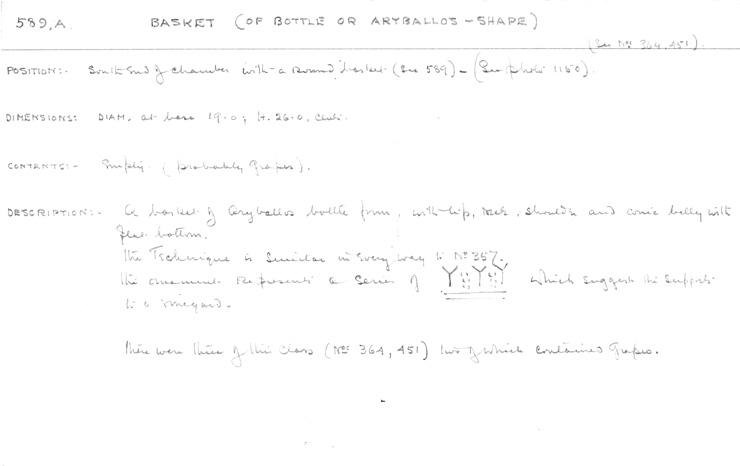 589, A. BASKET (OF BOTTLE OR ARYBALLOS-SHAPE)
(See Nos 364, 451).
POSITION:- South end of chamber with a round basket (See 589) - (See photo 1150).
DIMENSIONS: DIAM, at base 19.0; H. 26.0, cent.
CONTENTS:- Empty. (probably grapes).
DESCRIPTION:- A basket of aryballos bottle form, with lip, neck, shoulder and conic belly with
flat bottom.
The Technique is similar in every way to No 357.
The ornament represents a series of which suggest the supports
to a vineyard.
There were three of this class (Nos 364, 451) two of which contained grapes.